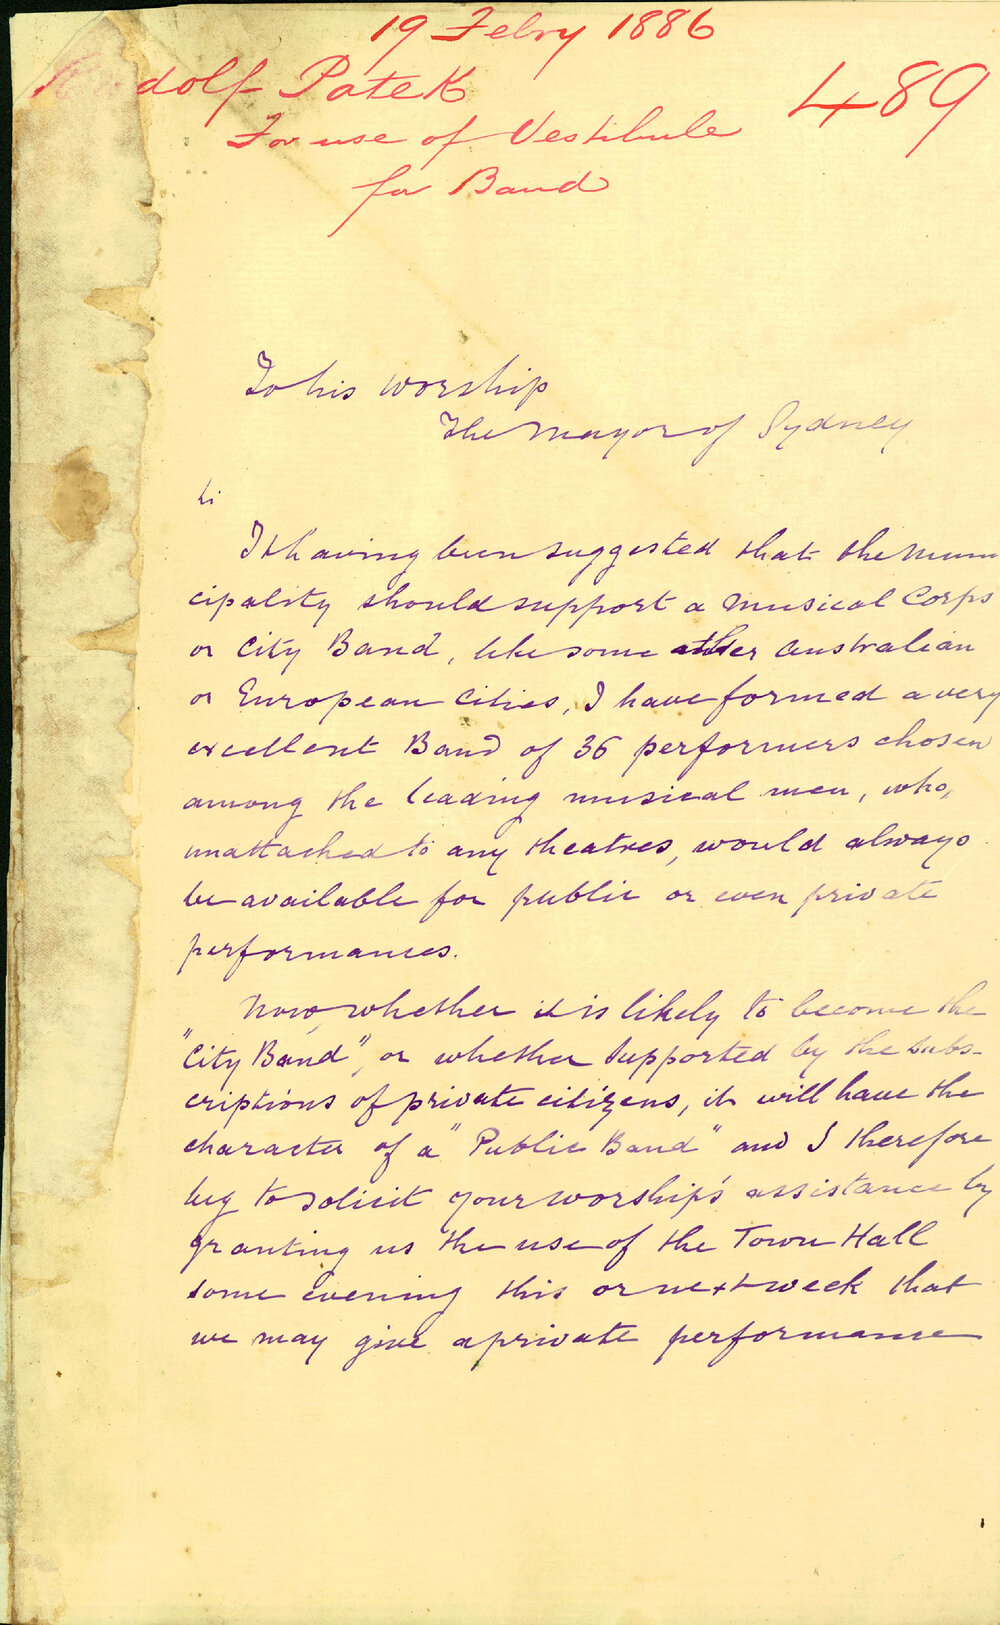 19 Febry 1886
Rudolf Patek
489
For use of Vestibule
for Band
To his worship
The Mayor of Sydney
It having been suggested that the Muni
cipality should support a Musical Corps
or City Band, like some other Australian
or European Cities, I have formed a very
excellent Band of 36 performers chosen
among the leading musical men, who,
unattached to any theatres, would always
be available for public or even private
performances.
Now, whether it is likely to become the
"City Band", or whether supported by the subs-
criptions of private citizens, it will have the
character of a "Public Band" and I therefore
beg to solicit your worship's assistance by
granting us the use of the Town Hall
some evening this or next week that
we may give a private performance